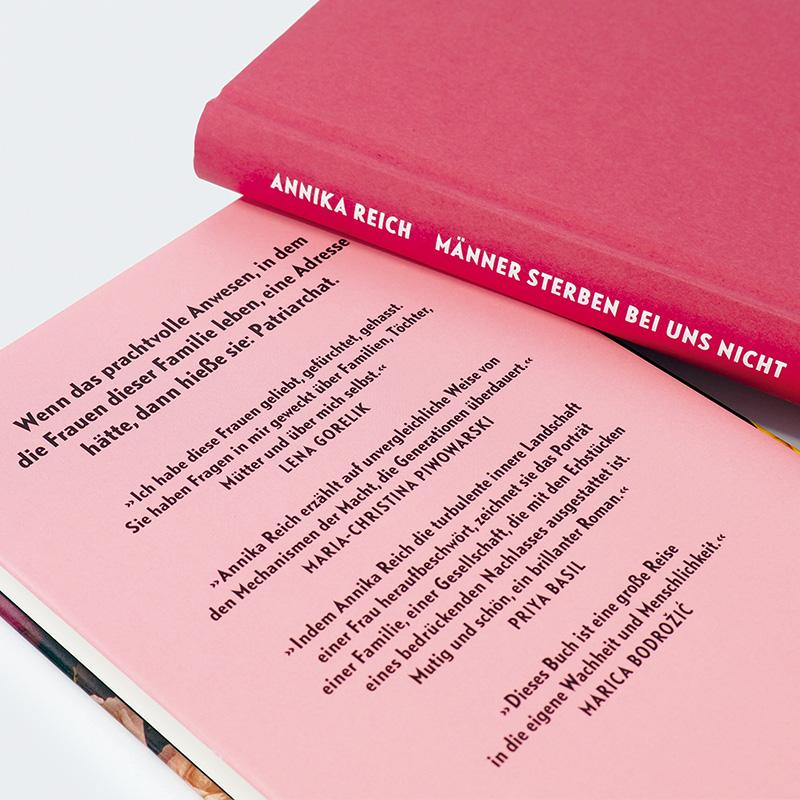 ANNIKA REICH MÄNNER STERBEN BEI UNS NICHT
Wenn das prachtvolle Anwesen, in dem
die Frauen dieser Familie leben, eine Adresse
hätte, dann hieße sie: Patriarchat.
»Ich habe diese Frauen geliebt, gefürchtet, gehasst.
Sie haben Fragen in mir geweckt über Familien, Töchter,
Mütter und über mich selbst.«
LENA GORELIK
»Annika Reich erzählt auf unvergleichliche Weise von
den Mechanismen der Macht, die Generationen überdauert.«
MARIA-CHRISTINA PIWOWARSKI
»Indem Annika Reich die turbulente innere Landschaft
einer Frau heraufbeschwört, zeichnet sie das Porträt
einer Familie, einer Gesellschaft, die mit den Erbstücken
eines bedrückenden Nachlasses ausgestattet ist.
Mutig und schön, ein brillanter Roman.«
PRIYA BASIL
»Dieses Buch ist eine große Reise
in die eigene Wachheit und Menschlichkeit.«
MARICA BODROŽIĆ